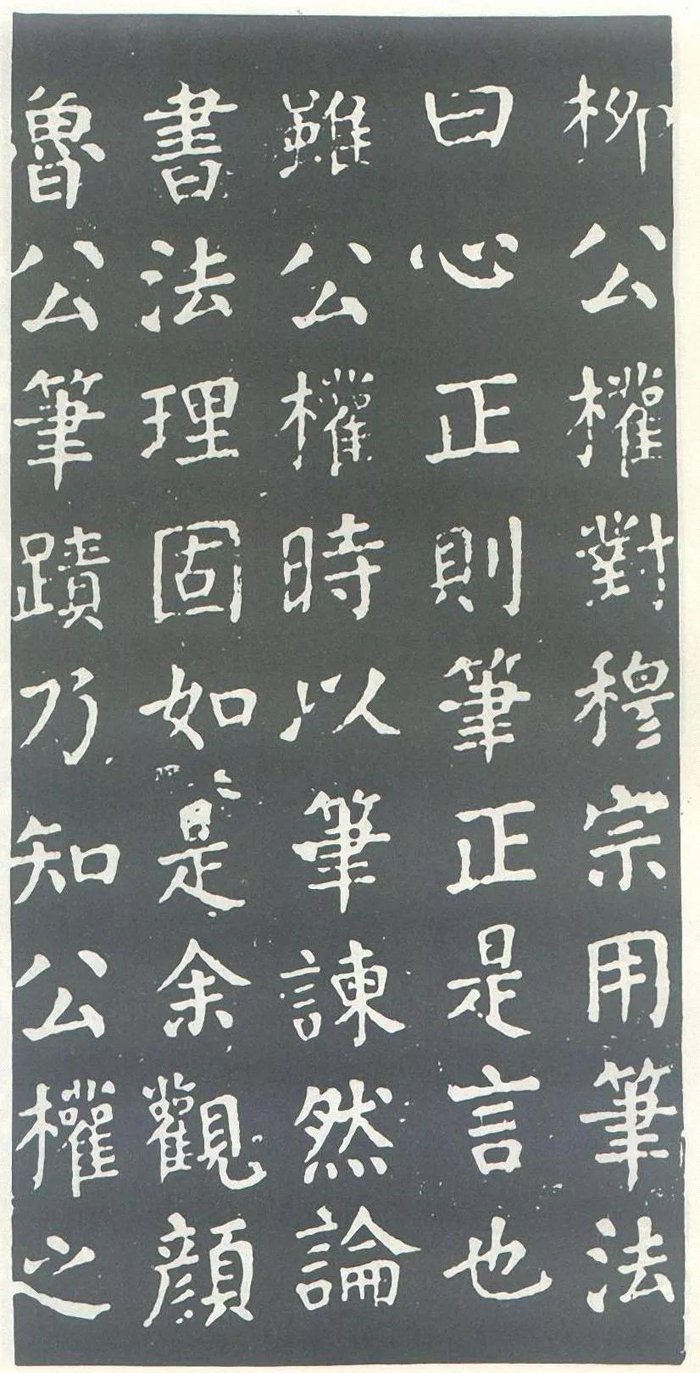 柳公權對穆宗用筆法
曰心正則筆正是言也
雖公權時以筆諫然論
書法理固如是余觀顔
魯公筆蹟乃知公權之